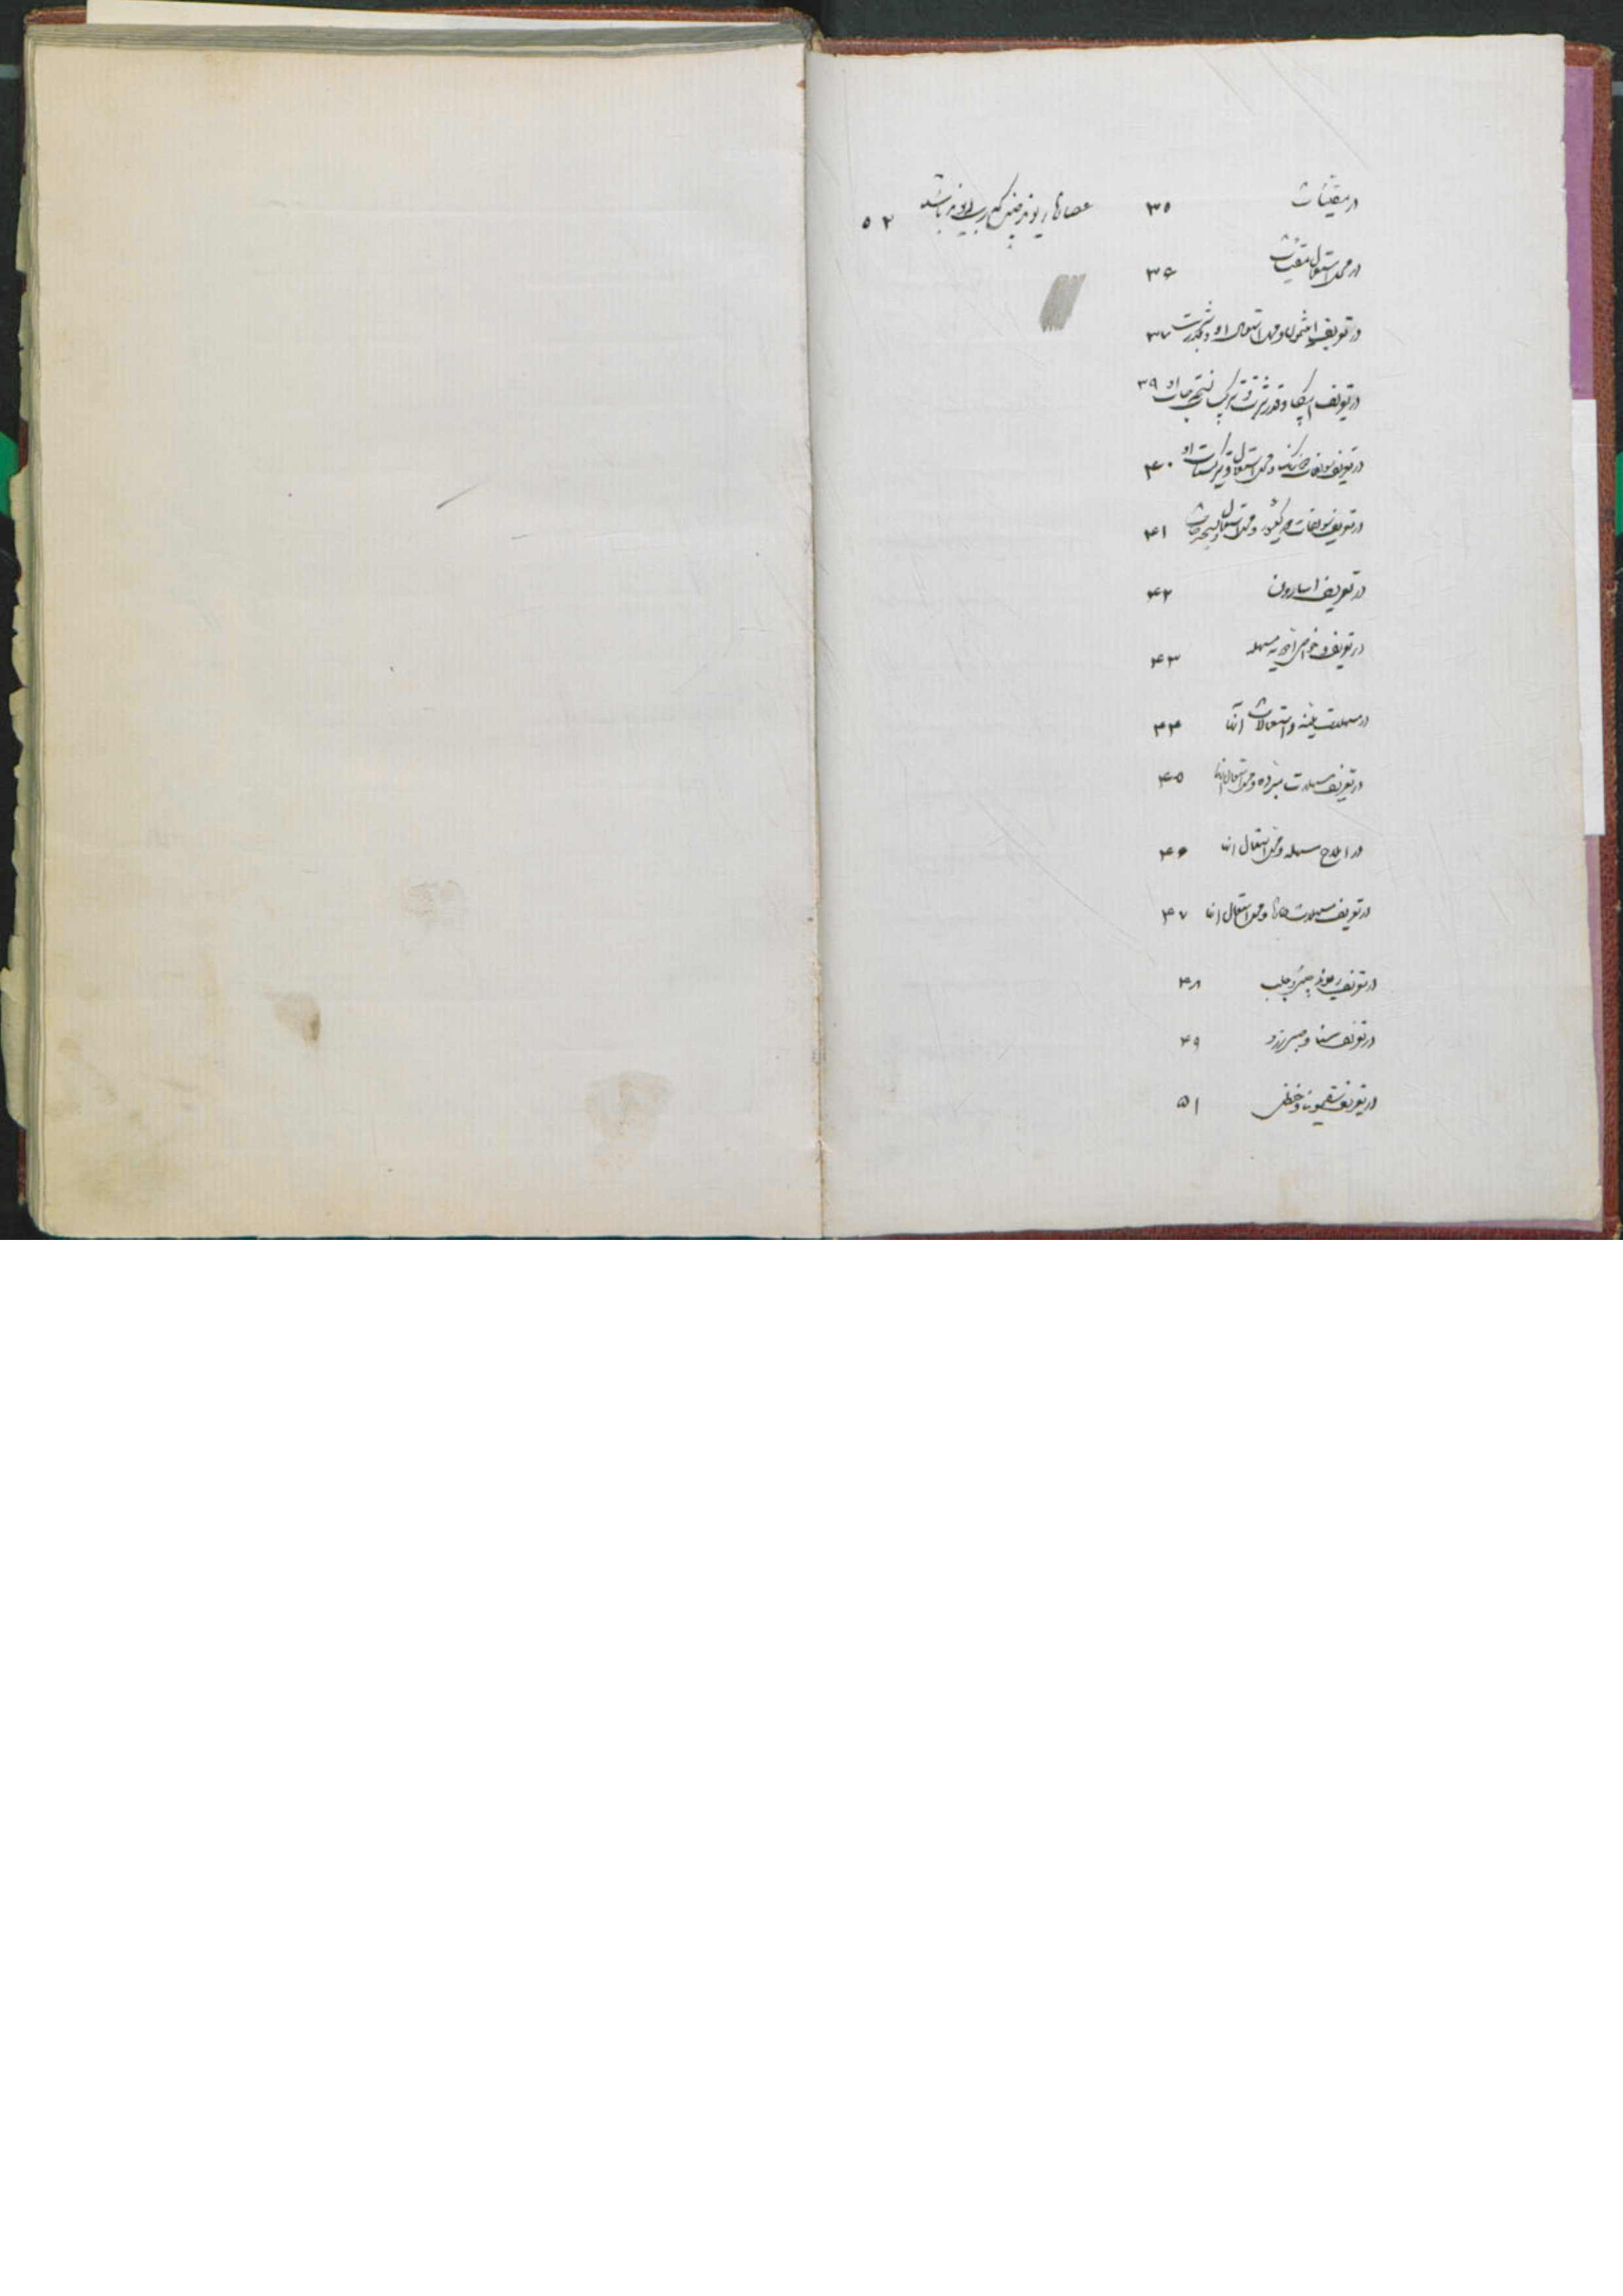 در مقیئات ۳۵
در محل استعمال مقیئات ۳۶
در تعریف و محل استعمال او و قدر شربت ۳۷
در تعریف ایپکا و قدر شربت و ترکیب او ۳۹
در تعریف سولفات و محل استعمال و ترکیبات او ۴۰
در تعریف سولفات و محل استعمال ۴۱
در تعریف اسارون ۴۲
در تعریف و خواص ادویه مسهله ۴۳
در مسهلات ملینه و استعمالات آنها ۴۴
در تعریف مسهلات مبرده و محل استعمال انها ۴۵
در املاح مسهله و محل استعمال انها ۴۶
در تعریف مسهلات حاره و محل استعمال انها ۴۷
در تعریف ریوند چینی و جلب ۴۸
در تعریف سنا و صبر زرد ۴۹
در تعریف سقمونیا و حنظل ۵۱
عصاره ریوند چینی که رب ریوند باشد ۵۲